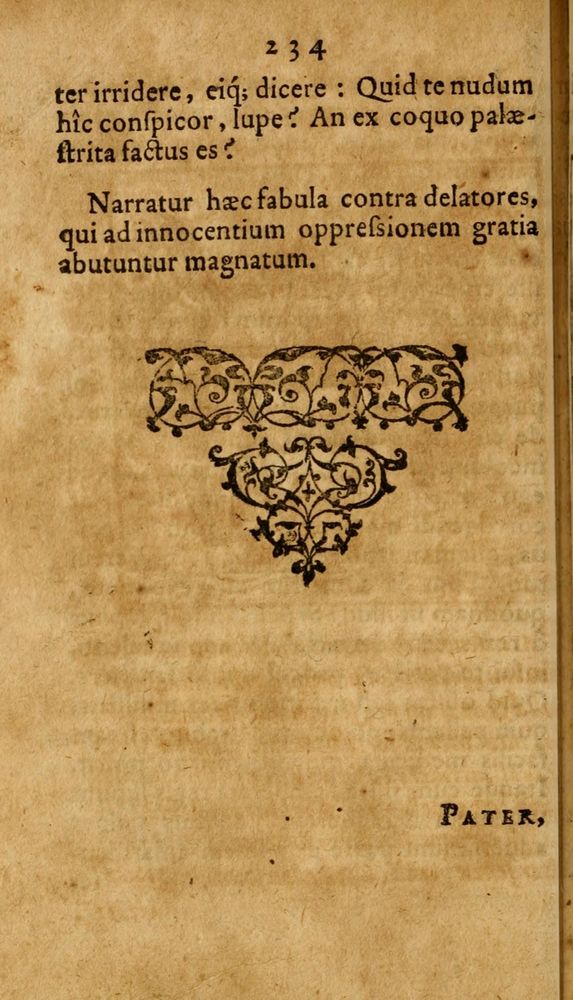 234
ter irridere, eiq́; dicere : Quid te nudum
hîc conſpicor, lupe? An ex coquo palæ-
ſtrita factus es?
Narratur hæc fabula contra delatores,
qui ad innocentium oppreſsionem gratia
abutuntur magnatum.
PATER,